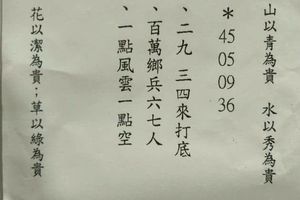 山以青為貴　水以秀為貴
＊45 05 09 36
、二九　三四來打底
、百萬鄉兵六七人
、一點風雲一點空
花以潔為貴；草以綠為貴